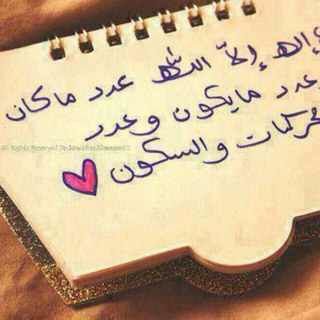 إله إلاّ اللّٰه عدد ماكان
وعدد مايكون وعدد
الحركات والسكون
All Rights Reserved